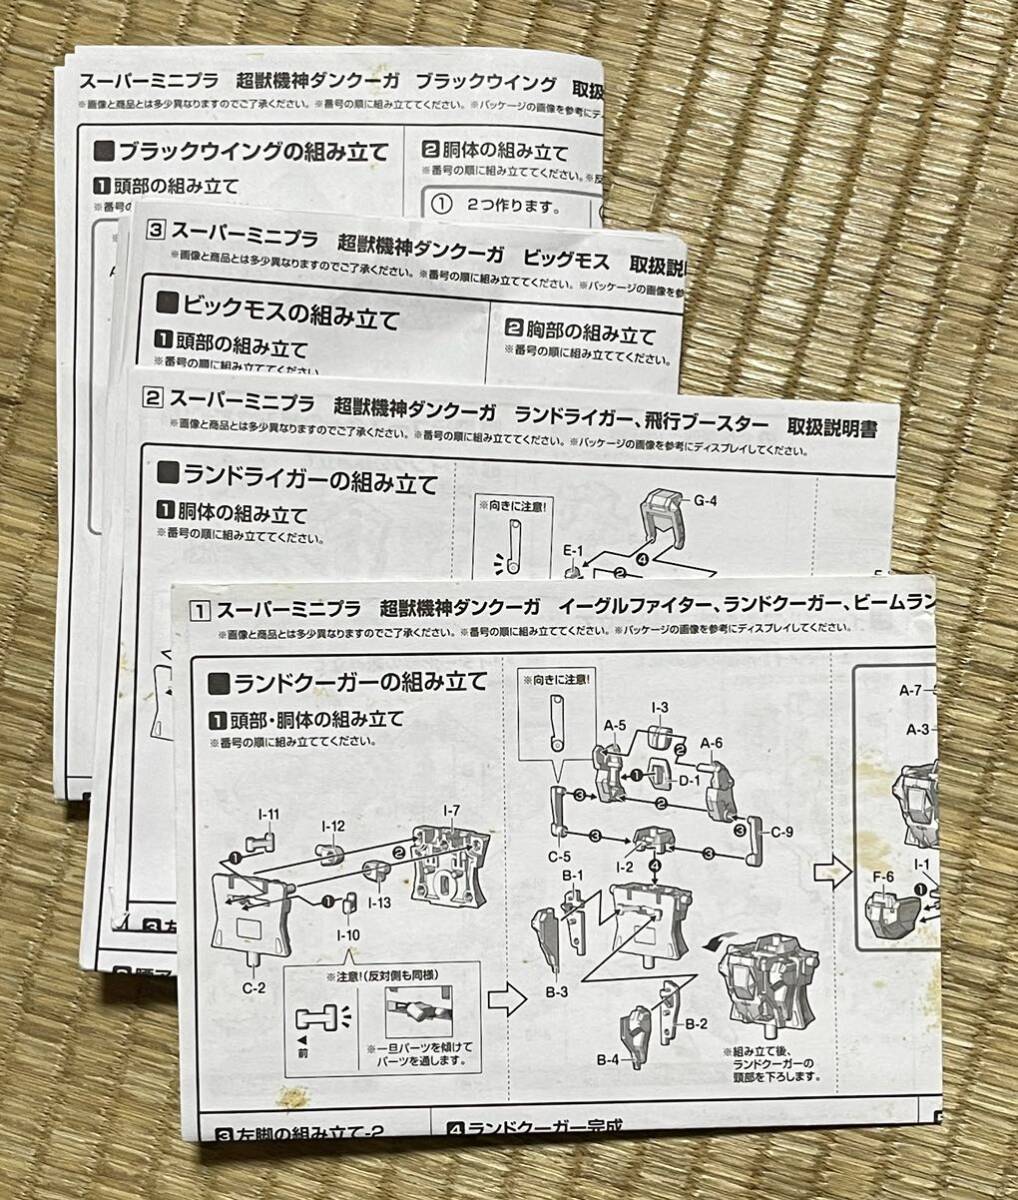 スーパーミニプラ 超獣機神ダンクーガ ブラックウイング 取扱
※画像と商品とは多少異なりますのでご了承ください。※番号の順に組み立ててください。※パッケージの画像を参考にデ
■ブラックウイングの組み立て
1 頭部の組み立て
※番号の
2 胴体の組み立て
※番号の順に組み立ててください。※反
① 2つ作ります。
3 スーパーミニプラ 超獣機神ダンクーガ ビッグモス 取扱説
※画像と商品とは多少異なりますのでご了承ください。※番号の順に組み立ててください。※パッケージの画像を参
■ビックモスの組み立て
1 頭部の組み立て
※番号の順に組み立ててください
2 胸部の組み立て
※番号の順に組み立ててください。
2 スーパーミニプラ 超獣機神ダンクーガ ランドライガー、飛行ブースター 取扱説明書
※画像と商品とは多少異なりますのでご了承ください。※番号の順に組み立ててください。※パッケージの画像を参考にディスプレイしてください。
■ランドライガーの組み立て
1 胴体の組み立て
※番号の順に組み立ててください。
※向きに注意!
G-4
E-1
4
2
1 スーパーミニプラ 超獣機神ダンクーガ イーグルファイター、ランドクーガー、ビームラン
※画像と商品とは多少異なりますのでご了承ください。※番号の順に組み立ててください。※パッケージの画像を参考にディスプレイしてください。
■ランドクーガーの組み立て
1 頭部・胴体の組み立て
※番号の順に組み立ててください。
I-11
I-12
I-7
1
2
I-13
1
I-10
C-2
※注意!(反対側も同様)
前
※一旦パーツを傾けて
パーツを通します。
※向きに注意!
I-3
A-5
A-6
2
1
D-1
3
2
3
C-9
3
3
C-5
I-2
4
B-1
B-3
B-2
B-4
※組み立て後、
ランドクーガーの
頸部を下ろします。
A-7
A-3
I-1
F-6
1
3 左脚の組み立て-2
4 ランドクーガー完成